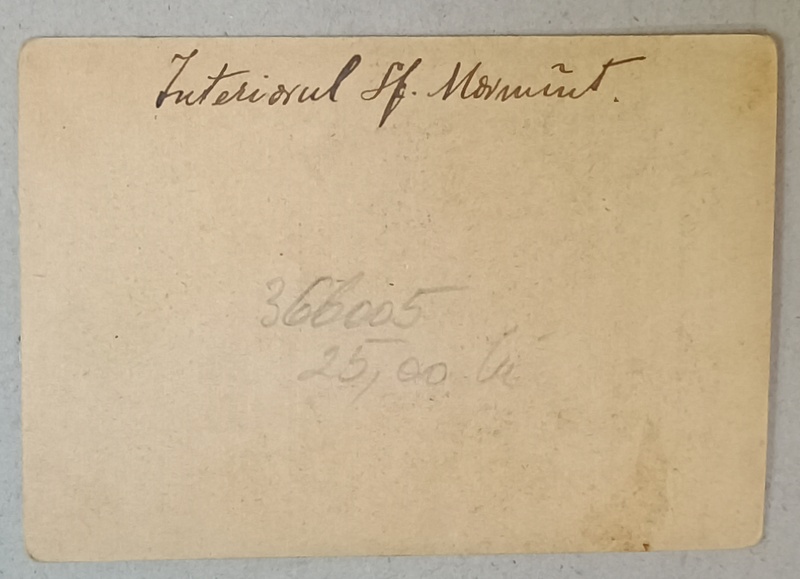 Interiorul Sf. Mormînt.
366005
25,00 lei